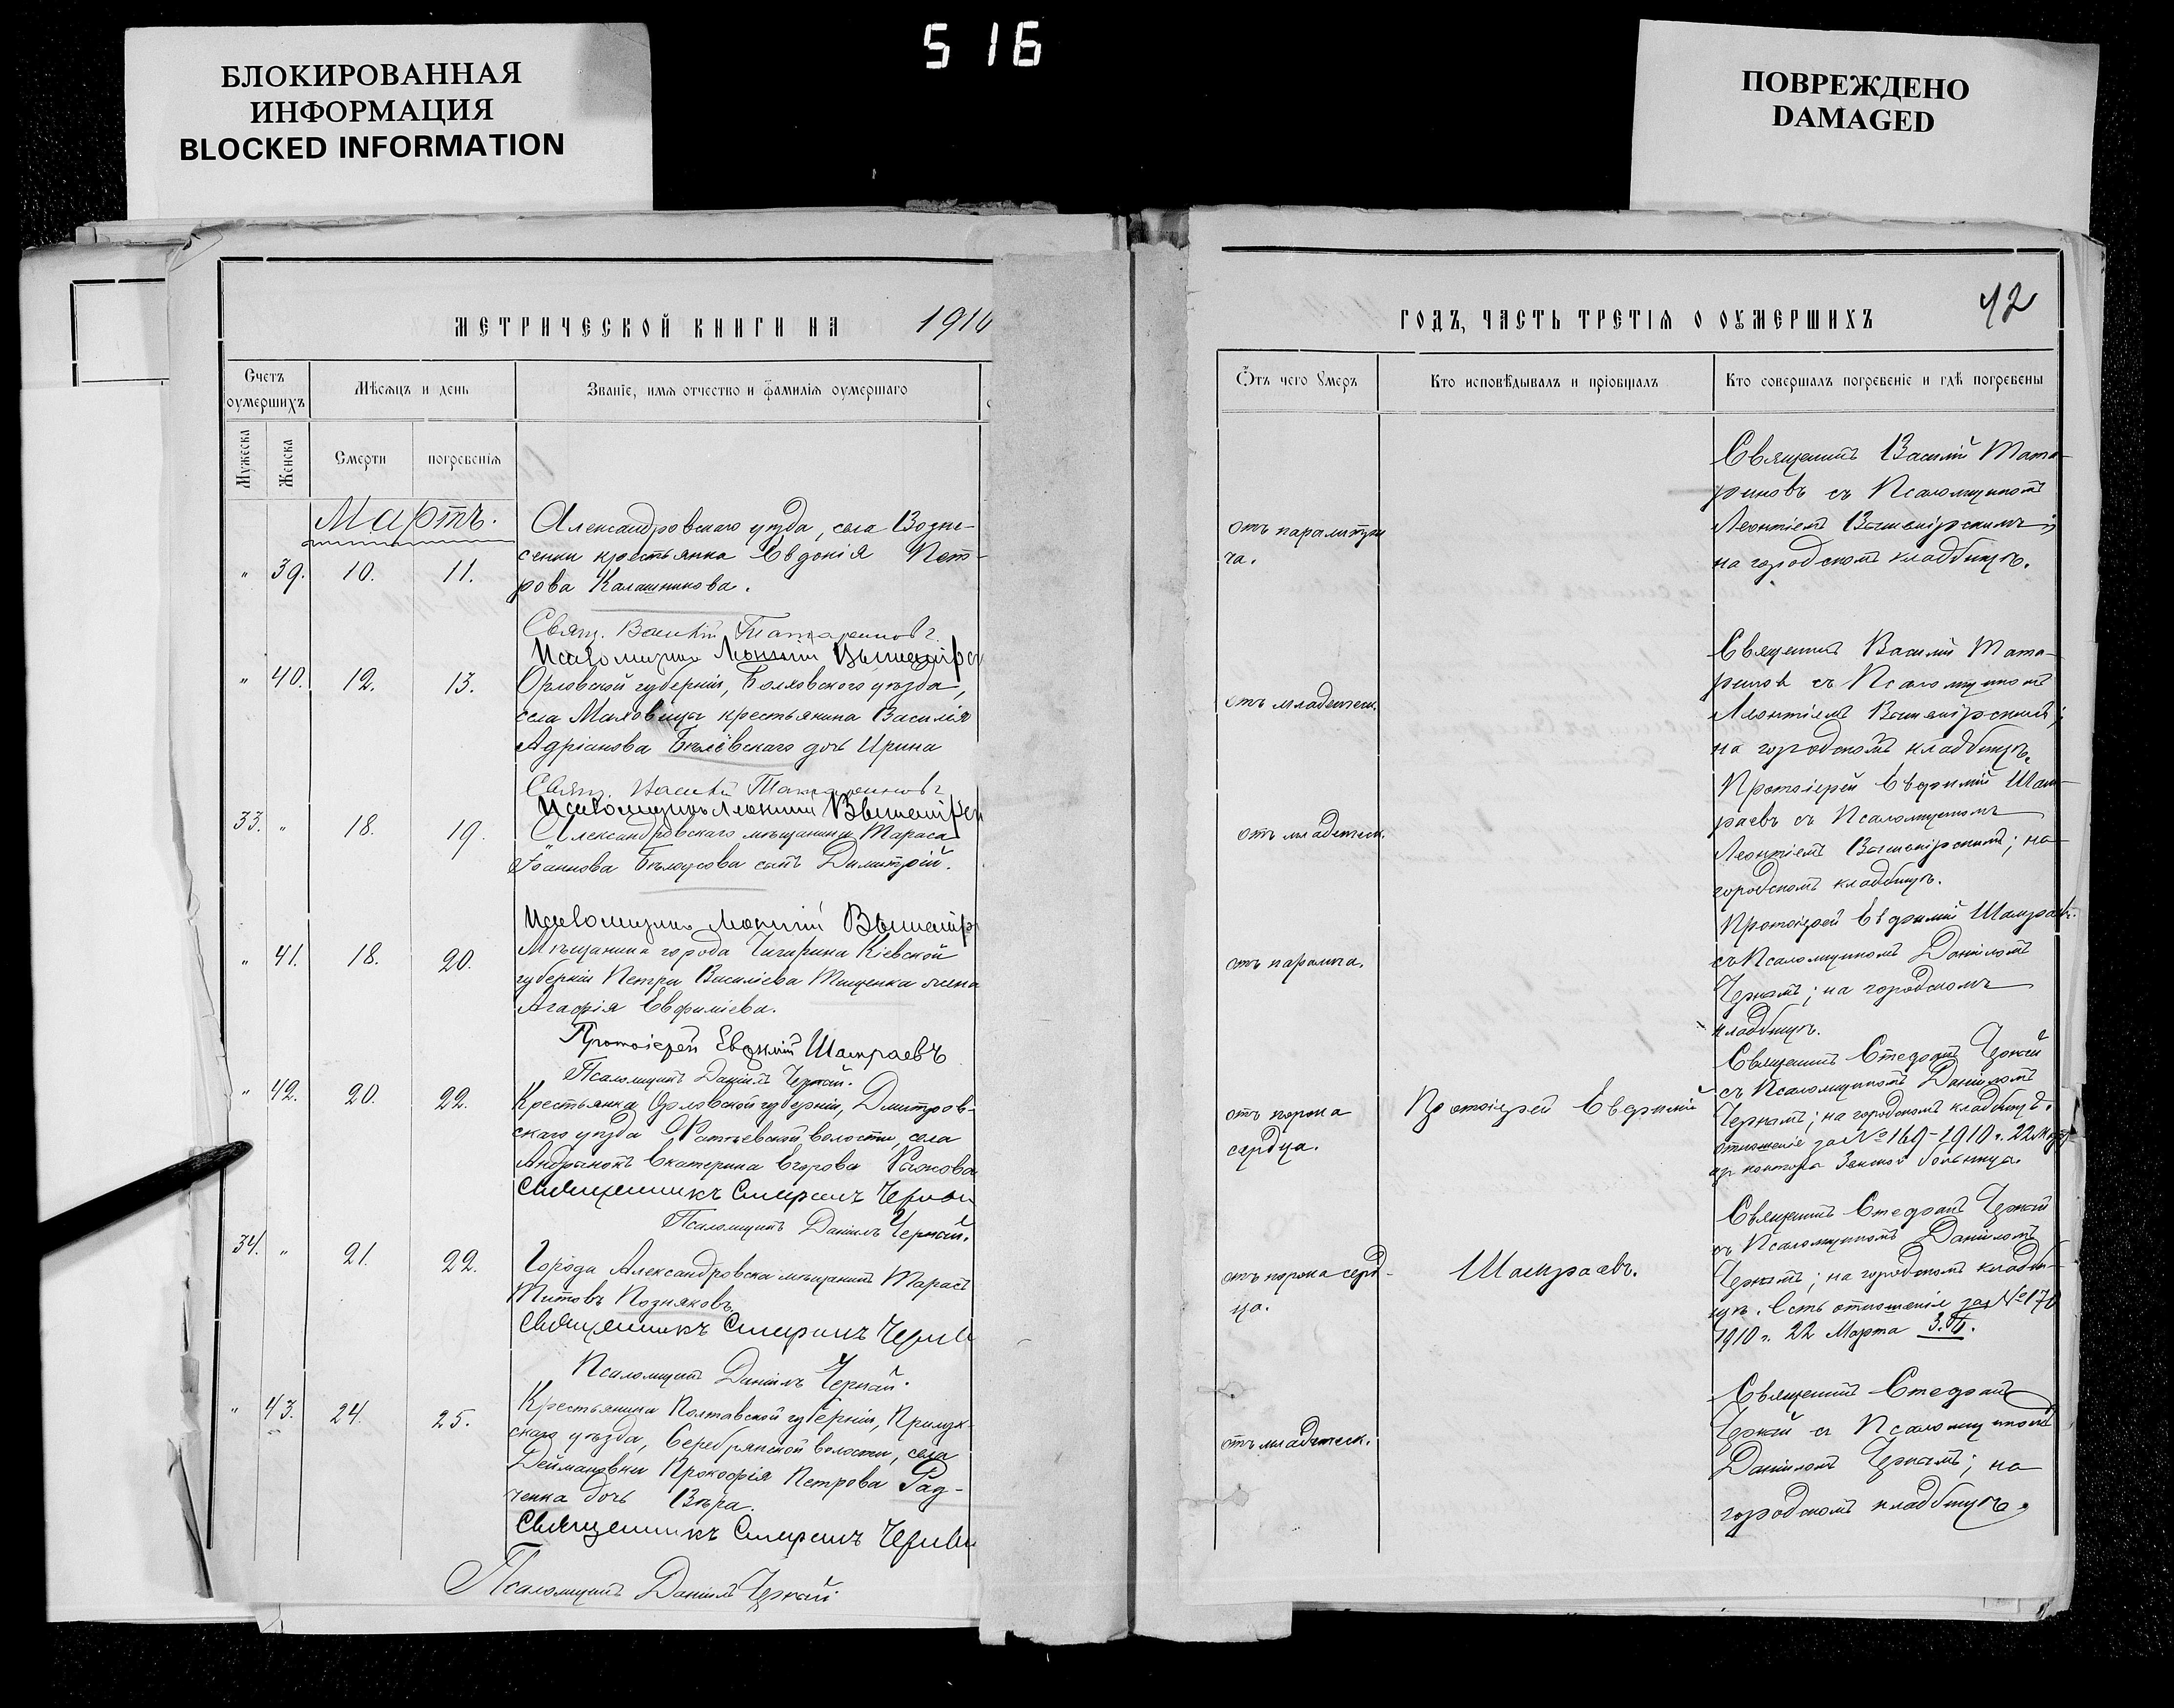 БЛОКИРОВАННАЯ
ИНФОРМАЦИЯ
BLOCKED INFORMATION
516
ПОВРЕЖДЕНО
DAMAGED
МЕТРИЧЕСКОЙ КНИГИ НА 1910
Счетъ оумершихъ
Мѣсяцъ и день
Званіе, имя отчество и фамилія оумершаго
Мужеска
Женска
Смерти
погребенія
Мартъ.
" 39. 10. 11.
Александровскаго уѣзда, села Возне-
сенки крестьянка Евдокія Пет-
рова Калашникова.
Свящ. Василій Татариновъ
Псаломщикъ Леонтій
" 40. 12. 13.
Орловской губерніи, Болховского уѣзда,
села крестьянина Василія
Адріанова Бѣлёвскаго дочь Ирина
Свящ. Василій Татариновъ
Псаломщикъ Леонтій
33. " 18. 19.
Александровскаго мѣщанина Тараса
Іоаннова Бѣлоусова сынъ Димитрій.
Псаломщикъ Леонтій
" 41. 18. 20.
Мѣщанина города Чигирина Кіевской
губерніи Петра Василіева Тищенка жена
Агафія Евфиміева.
Протоіерей Евфимій Шамраевъ
Псаломщикъ Даніилъ Черный.
" 42. 20. 22.
Крестьянка Орловской губерніи, Дмитров-
скаго уѣзда волости, села
Екатерина Егорова
Священникъ Стефанъ
Псаломщикъ Даніилъ Черный.
34. " 21. 22.
Города Александровска мѣщанинъ Тарасъ
Титовъ Позняковъ.
Священникъ Стефанъ
Псаломщикъ Даніилъ Черный.
" 43. 24. 25.
Крестьянина Полтавской губерніи, Прилук-
скаго уѣзда, Серебрянской волости, села
Деймановки Прокофія Петрова Рад-
ченка дочь Вѣра.
Священникъ Стефанъ
Псаломщикъ Даніилъ Черный
ГОДЪ, ЧАСТЬ ТРЕТІЯ О ОУМЕРШИХЪ
42
Отъ чего Умеръ
Кто исповѣдывалъ и пріобщалъ
Кто совершалъ погребеніе и гдѣ погребены
отъ
Священникъ Василій Тата-
риновъ съ Псаломщикомъ
Леонтіемъ
на городскомъ кладбищѣ.
отъ младенческ.
Священникъ Василій Тата-
ринов съ Псаломщикомъ
Леонтіемъ
на городскомъ кладбищѣ.
отъ младенческ.
Протоіерей Евфимій Шам-
раевъ съ Псаломщикомъ
Леонтіемъ на
городскомъ кладбищѣ.
отъ паралича.
Протоіерей Евфимій Шамраевъ
съ Псаломщикомъ Даніиломъ
Чернымъ; на городскомъ
кладбищѣ.
отъ порока
сердца.
Протоіерей Евфимій
Священникъ Стефанъ Черный
съ Псаломщикомъ Даніиломъ
Чернымъ; на городскомъ кладбищѣ.
отношеніе за № 169 - 1910 г. 22 Марта
контора Земской больницы.
отъ порока серд-
ца.
Шамраевъ.
Священникъ Стефанъ Черный
съ Псаломщикомъ Даніиломъ
Чернымъ; на городскомъ кладби-
щѣ. Есть отношеніе за № 170
1910 г. 22 Марта З.Б.
отъ младенческ.
Священникъ Стефанъ
Черный съ Псаломщикомъ
Даніиломъ Чернымъ; на
городскомъ кладбищѣ.